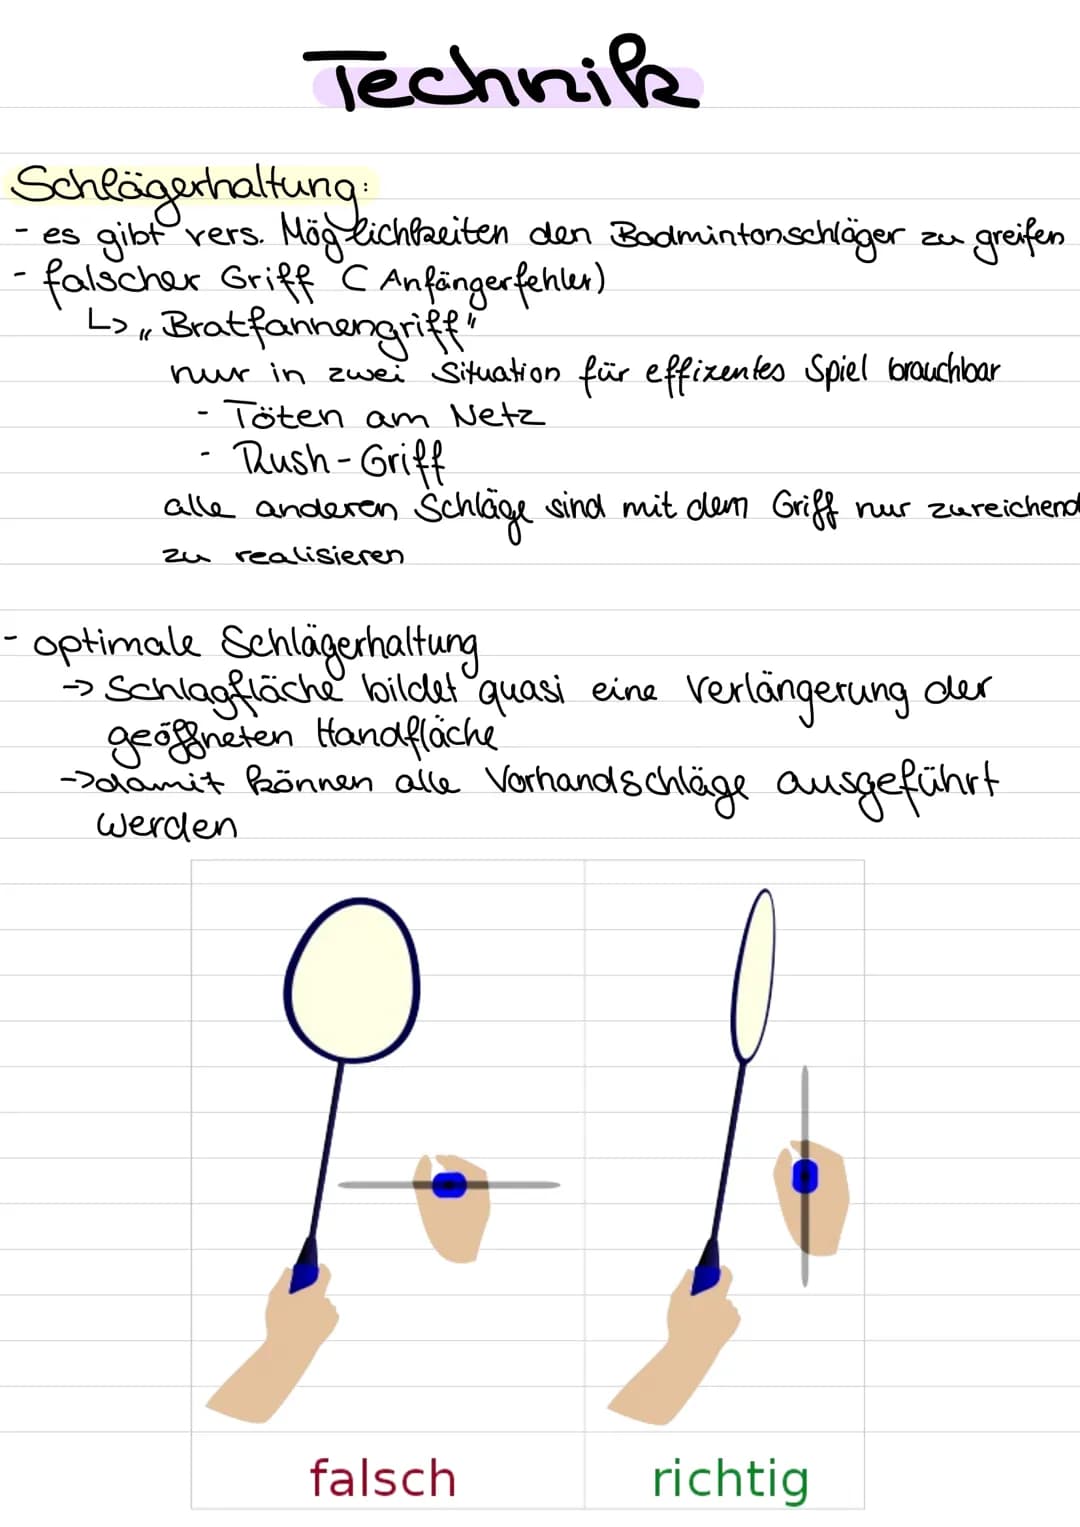 Technik
Schlägerhaltung:
- es gibt vers. Möglichkeiten den Badmintonschläger zu greifen
- falscher Griff (Anfängerfehler)
↳ „Bratfannengriff"
nur in zwei Situation für effizentes Spiel brauchbar
- Töten am Netz
- Rush-Griff
alle anderen Schläge sind mit dem Griff nur zureichend
zu realisieren
- optimale Schlägerhaltung
-> Schlagfläche bildet quasi eine Verlängerung der
geöffneten Handfläche
-> damit können alle Vorhandschläge ausgeführt
werden
falsch richtig